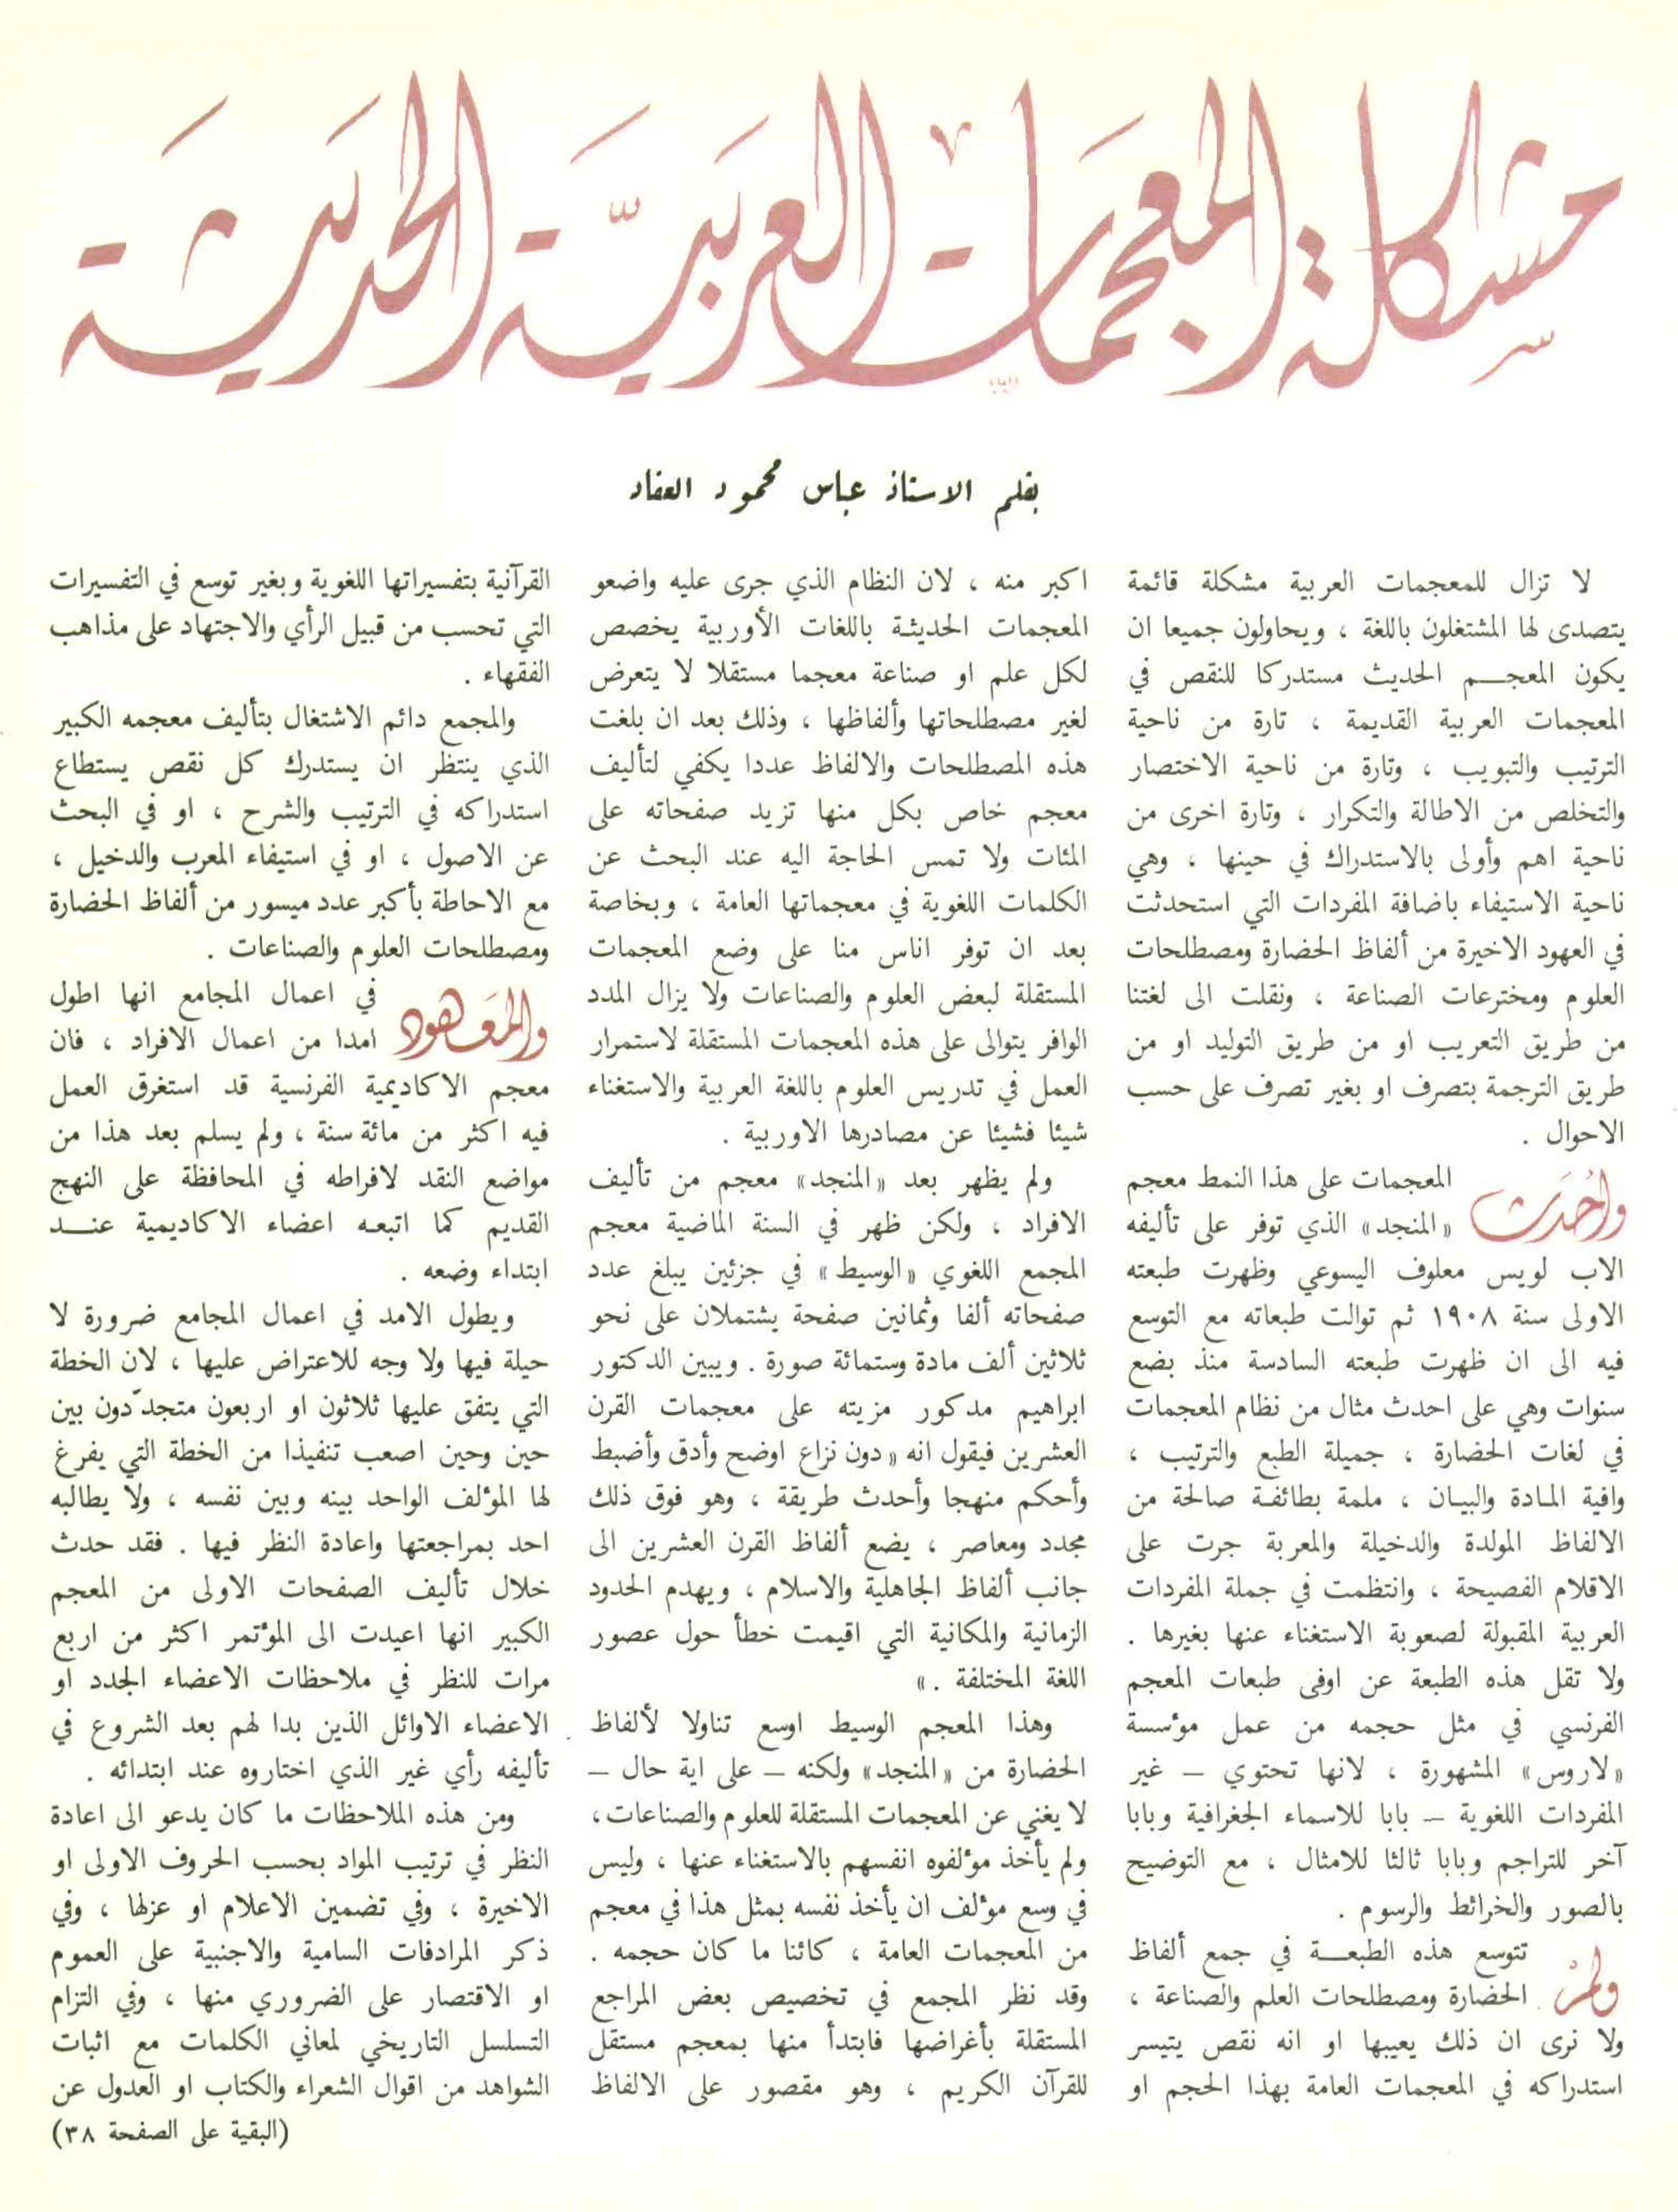 مشكلة المعجمات العربيَّة الحديثة
بقلم الاستاذ عباس محمود العقاد
لا تزال للمعجمات العربية مشكلة قائمة
يتصدى لها المشتغلون باللغة ، ويحاولون جميعا ان
يكون المعجم الحديث مستدركا للنقص في
المعجمات العربية القديمة ، تارة من ناحية
الترتيب والتبويب ، وتارة من ناحية الاختصار
والتخلص من الاطالة والتكرار ، وتارة اخرى من
ناحية اهم وأولى بالاستدراك في حينها ، وهي
ناحية الاستيفاء باضافة المفردات التي استحدثت
في العهود الاخيرة من ألفاظ الحضارة ومصطلحات
العلوم ومخترعات الصناعة ، ونقلت الى لغتنا
من طريق التعريب او من طريق التوليد او من
طريق الترجمة بتصرف او بغير تصرف على حسب
الاحوال .
وأحدث المعجمات على هذا النمط معجم
«المنجد» الذي توفر على تأليفه
الاب لويس معلوف اليسوعي وظهرت طبعته
الاولى سنة ١٩٠٨ ثم توالت طبعاته مع التوسع
فيه الى ان ظهرت طبعته السادسة منذ بضع
سنوات وهي على احدث مثال من نظام المعجمات
في لغات الحضارة ، جميلة الطبع والترتيب ،
وافية المادة والبيان ، ملمة بطائفة صالحة من
الالفاظ المولدة والدخيلة والمعربة جرت على
الاقلام الفصيحة ، وانتظمت في جملة المفردات
العربية المقبولة لصعوبة الاستغناء عنها بغيرها .
ولا تقل هذه الطبعة عن اوفى طبعات المعجم
الفرنسي في مثل حجمه من عمل مؤسسة
«لاروس» المشهورة ، لانها تحتوي – غير
المفردات اللغوية – بابا للاسماء الجغرافية وبابا
آخر للتراجم وبابا ثالثا للامثال ، مع التوضيح
بالصور والخرائط والرسوم .
ولم تتوسع هذه الطبعة في جمع ألفاظ
الحضارة ومصطلحات العلم والصناعة ،
ولا نرى ان ذلك يعيبها او انه نقص يتيسر
استدراكه في المعجمات العامة بهذا الحجم او
اكبر منه ، لان النظام الذي جرى عليه واضعو
المعجمات الحديثة باللغات الأوربية يخصص
لكل علم او صناعة معجما مستقلا لا يتعرض
لغير مصطلحاتها وألفاظها ، وذلك بعد ان بلغت
هذه المصطلحات والالفاظ عددا يكفي لتأليف
معجم خاص بكل منها تزيد صفحاته على
المئات ولا تمس الحاجة اليه عند البحث عن
الكلمات اللغوية في معجماتها العامة ، وبخاصة
بعد ان توفر اناس منا على وضع المعجمات
المستقلة لبعض العلوم والصناعات ولا يزال المدد
الوافر يتوالى على هذه المعجمات المستقلة لاستمرار
العمل في تدريس العلوم باللغة العربية والاستغناء
شيئا فشيئا عن مصادرها الاوربية .
ولم يظهر بعد «المنجد» معجم من تأليف
الافراد ، ولكن ظهر في السنة الماضية معجم
المجمع اللغوي «الوسيط» في جزئين يبلغ عدد
صفحاته ألفا وثمانين صفحة يشتملان على نحو
ثلاثين ألف مادة وستمائة صورة . ويبين الدكتور
ابراهيم مدكور مزيته على معجمات القرن
العشرين فيقول انه «دون نزاع اوضح وأدق وأضبط
وأحكم منهجا وأحدث طريقة ، وهو فوق ذلك
مجدد ومعاصر ، يضع ألفاظ القرن العشرين الى
جانب ألفاظ الجاهلية والاسلام ، ويهدم الحدود
الزمانية والمكانية التي اقيمت خطأ حول عصور
اللغة المختلفة . »
وهذا المعجم الوسيط اوسع تناولا لألفاظ
الحضارة من «المنجد» ولكنه – على اية حال –
لا يغني عن المعجمات المستقلة للعلوم والصناعات ،
ولم يأخذ مؤلفوه انفسهم بالاستغناء عنها ، وليس
في وسع مؤلف ان يأخذ نفسه بمثل هذا في معجم
من المعجمات العامة ، كائنا ما كان حجمه .
وقد نظر المجمع في تخصيص بعض المراجع
المستقلة بأغراضها فابتدأ منها بمعجم مستقل
للقرآن الكريم ، وهو مقصور على الالفاظ
القرآنية بتفسيراتها اللغوية وبغير توسع في التفسيرات
التي تحسب من قبيل الرأي والاجتهاد على مذاهب
الفقهاء .
والمجمع دائم الاشتغال بتأليف معجمه الكبير
الذي ينتظر ان يستدرك كل نقص يستطاع
استدراكه في الترتيب والشرح ، او في البحث
عن الاصول ، او في استيفاء المعرب والدخيل ،
مع الاحاطة بأكبر عدد ميسور من ألفاظ الحضارة
ومصطلحات العلوم والصناعات .
والمَعهود في اعمال المجامع انها اطول
امدا من اعمال الافراد ، فان
معجم الاكاديمية الفرنسية قد استغرق العمل
فيه اكثر من مائة سنة ، ولم يسلم بعد هذا من
مواضع النقد لافراطه في المحافظة على النهج
القديم كما اتبعه اعضاء الاكاديمية عند
ابتداء وضعه .
ويطول الامد في اعمال المجامع ضرورة لا
حيلة فيها ولا وجه للاعتراض عليها ، لان الخطة
التي يتفق عليها ثلاثون او اربعون متجدّدون بين
حين وحين اصعب تنفيذا من الخطة التي يفرغ
لها المؤلف الواحد بينه وبين نفسه ، ولا يطالبه
احد بمراجعتها واعادة النظر فيها . فقد حدث
خلال تأليف الصفحات الاولى من المعجم
الكبير انها اعيدت الى المؤتمر اكثر من اربع
مرات للنظر في ملاحظات الاعضاء الجدد او
الاعضاء الاوائل الذين بدا لهم بعد الشروع في
تأليفه رأي غير الذي اختاروه عند ابتدائه .
ومن هذه الملاحظات ما كان يدعو الى اعادة
النظر في ترتيب المواد بحسب الحروف الاولى او
الاخيرة ، وفي تضمين الاعلام او عزلها ، وفي
ذكر المرادفات السامية والاجنبية على العموم
او الاقتصار على الضروري منها ، وفي التزام
التسلسل التاريخي لمعاني الكلمات مع اثبات
الشواهد من اقوال الشعراء والكتاب او العدول عن
(البقية على الصفحة ٣٨)